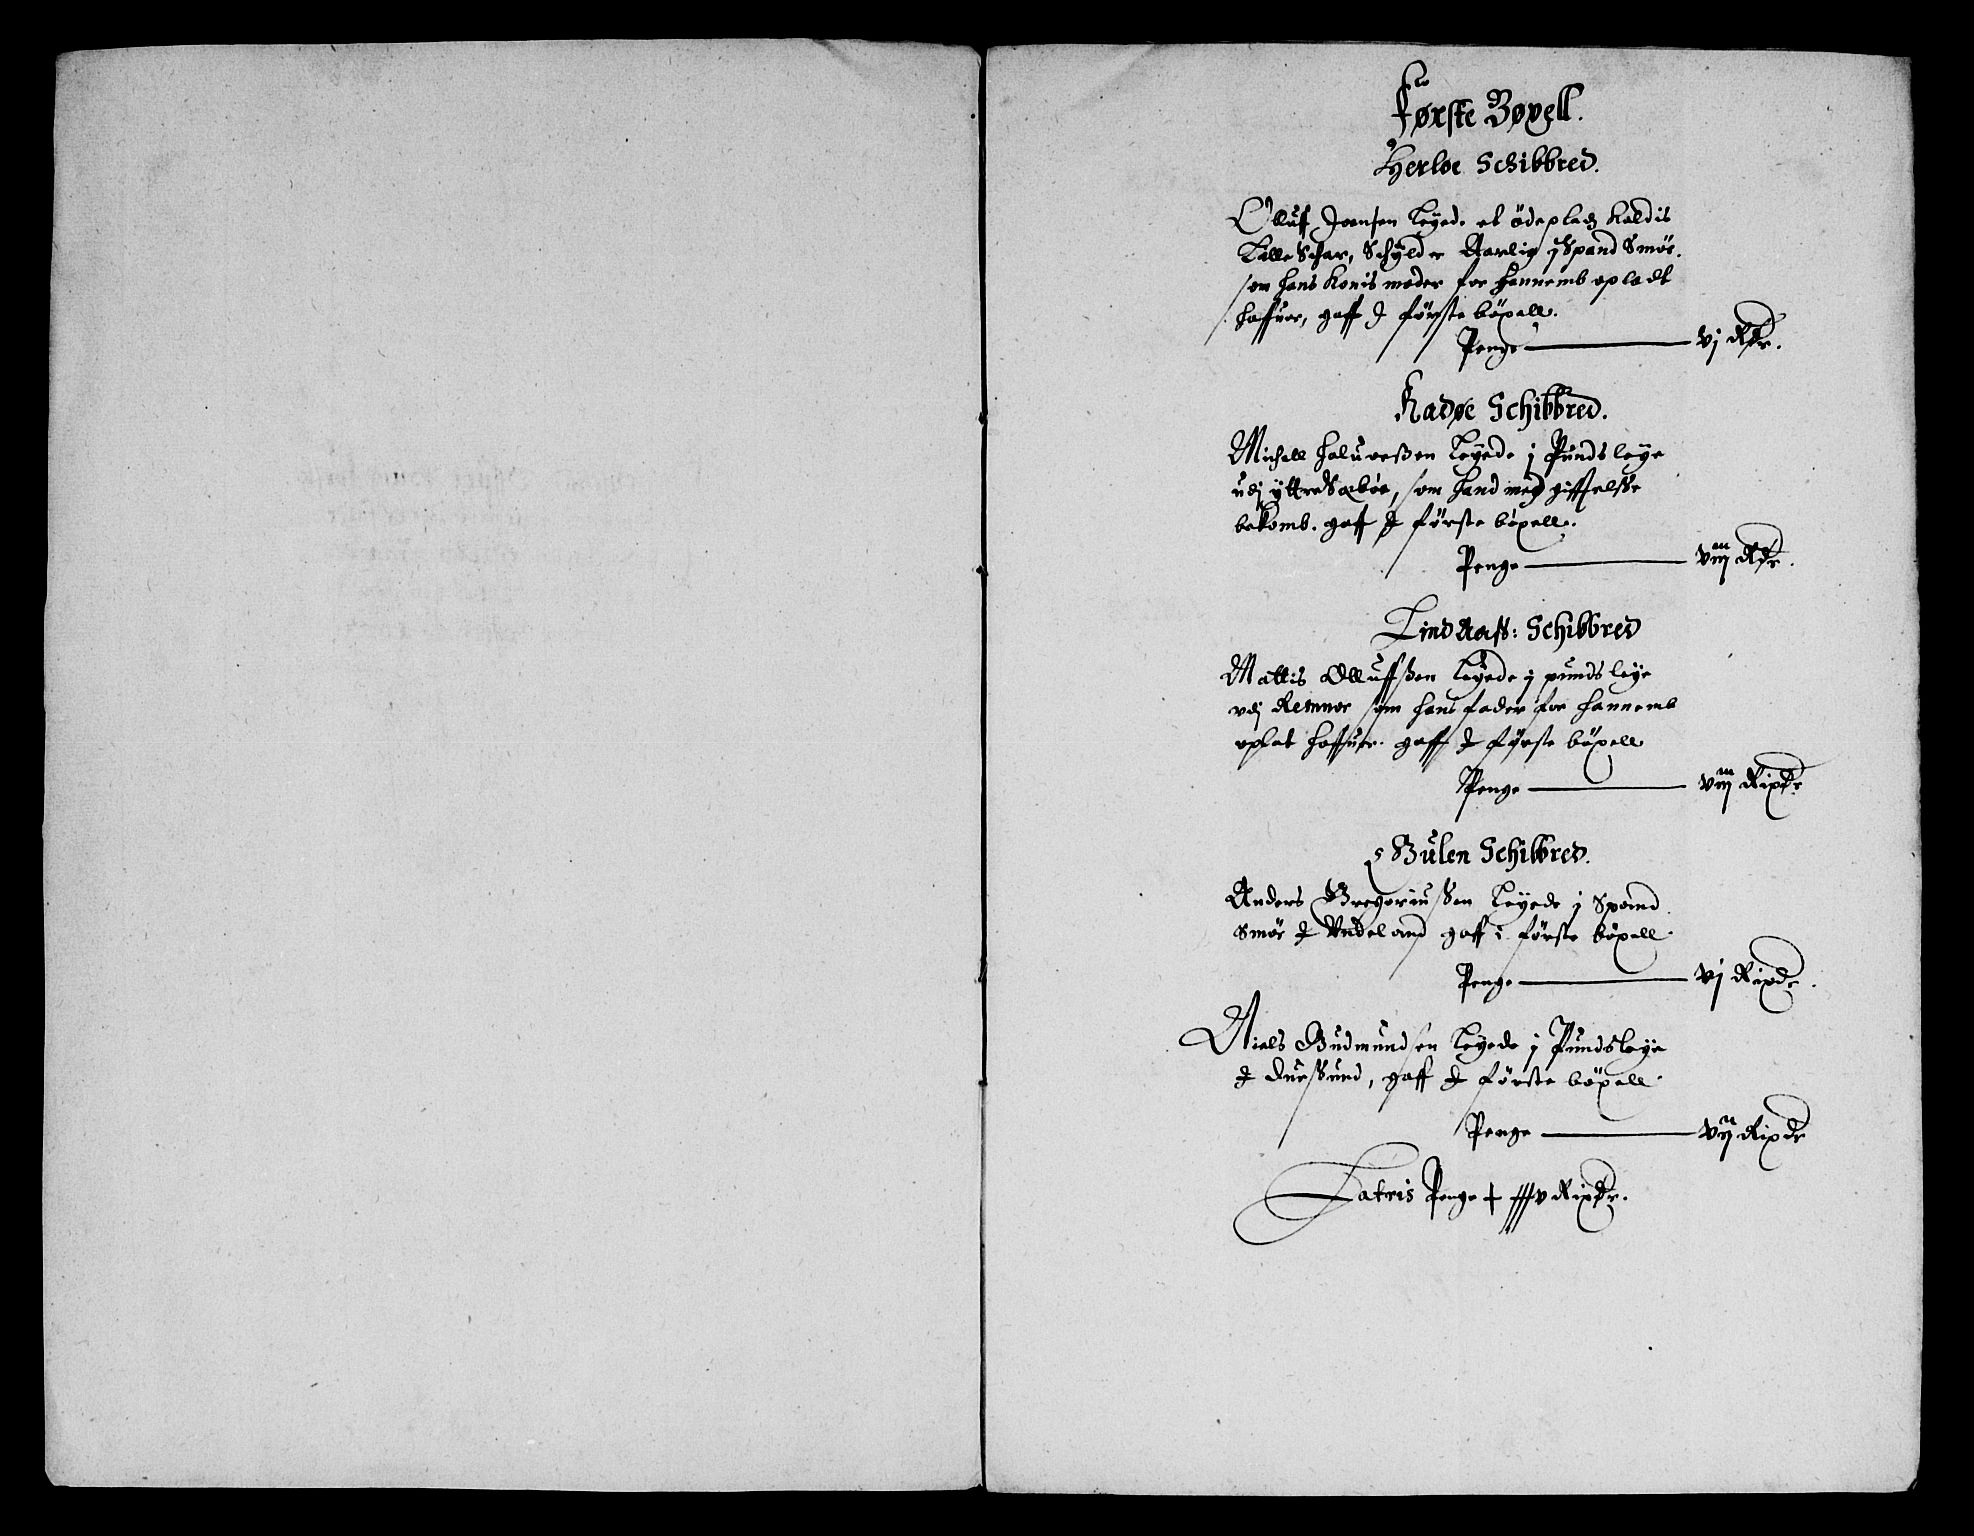 Første Bøxell.
Herløe Schibbred.
Olluf Joensen leyede et ødeplads kaldis
Lille Schar, Schylder Aarlig j Spand Smør.
som hans Konis moder for hannemb opladt
haffuer, gaff J første böxell.
Penge — vj Rdr.
Radøe Schibbred.
Michell Haluorßen leyede j Pundsleye
udj yttre Sæbøe, som hand med gifftelsse
bekomb. gaff J første böxell.
Penge — viij Rdr.
Lindaas: Schibbred
Mattis Olluffßen leyede j pundsleye
vdj Remnor som hans fader for hannemb
oplat haffuer. gaff J første böxell
Penge — viij Rixdr
Gulen Schibbred.
Anders Gregoriußen leyede j Spand
Smør J Vndeland gaff i første böxell
Penge — vj Rixdr.
Niels Gudmundsen leyede j Pundsleye
J Dueßund, gaff J første böxell
Penge — vij Rixdr
Latris Penge xxxv Rixdr.